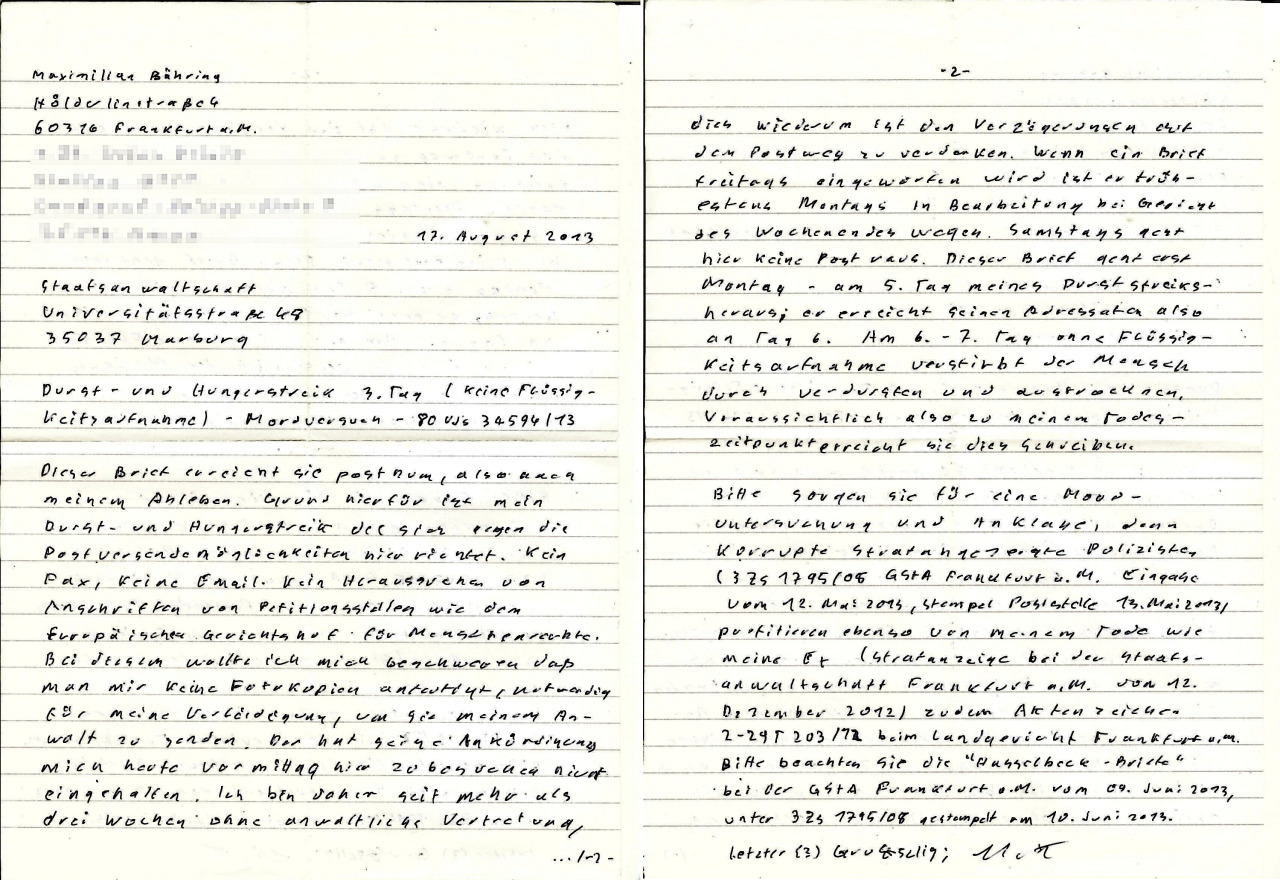 Maximilian Bähring
Hölderlinstraße 4
60316 Frankfurt a.M.
17. August 2013
Staatsanwaltschaft
Universitätsstraße 48
35037 Marburg
Durst- und Hungerstreik 3. Tag (keine Flüssig-
keitsaufnahme) - Mordversuch - 80 UJs 34594/13
Dieser Brief erreicht sie posthum, also nach
meinem Ableben. Grund hierfür ist mein
Durst- und Hungerstreik der sich gegen die
Postversendemöglichkeiten hier richtet. Kein
Fax, keine Email. Kein Heraussuchen von
Anschriften von Petitionsstellen wie dem
Europäischen Gerichtshof für Menschenrechte.
Bei diesem wollte ich mich beschweren daß
man mir keine Fotokopien anfertigt, notwendig
für meine Verteidigung, um sie meinem An-
walt zu senden. Der hat seine Ankündigung
mich heute vormittag hier zu besuchen nicht
eingehalten. Ich bin daher seit mehr als
drei Wochen ohne anwaltliche Vertretung,
.../-2-
-2-
dies wiederum ist den Verzögerungen auf
dem Postweg zu verdanken. Wenn ein Brief
freitags eingeworfen wird ist er früh-
estens Montags in Bearbeitung bei Gericht
des Wochenendes wegen. Samstags geht
hier keine Post raus. Dieser Brief geht erst
Montag - am 5. Tag meines Durststreiks-
heraus; er erreicht seinen Adressaten also
an Tag 6. Am 6. - 7. Tag ohne Flüssig-
keitsaufnahme verstirbt der Mensch
durch verdursten und austrocknen.
Voraussichtlich also zu meinem Todes-
zeitpunkt erreicht sie dies Schreiben.
Bitte sorgen sie für eine Mord-
untersuchung und Anklage, denn
korrupte strafangezeigte Polizisten
(3 Zs 1795/08 GStA Frankfurt a.M. Eingabe
vom 12. Mai 2013, Stempel Poststelle 13. Mai 2013)
profitieren ebenso von meinem Tode wie
meine Ex (Strafanzeige bei der Staats-
anwaltschaft Frankfurt a.M. vom 12.
Dezember 2012) zudem Aktenzeichen
2-29T 203/12 beim Landgericht Frankfurt a.M.
Bitte beachten Sie die "Husselbeck-Briefe"
bei der GStA Frankfurt a.M. vom 09. Juni 2013,
unter 3 Zs 1795/08 gestempelt am 10. Juni 2013.
Letzter (3) Gruß